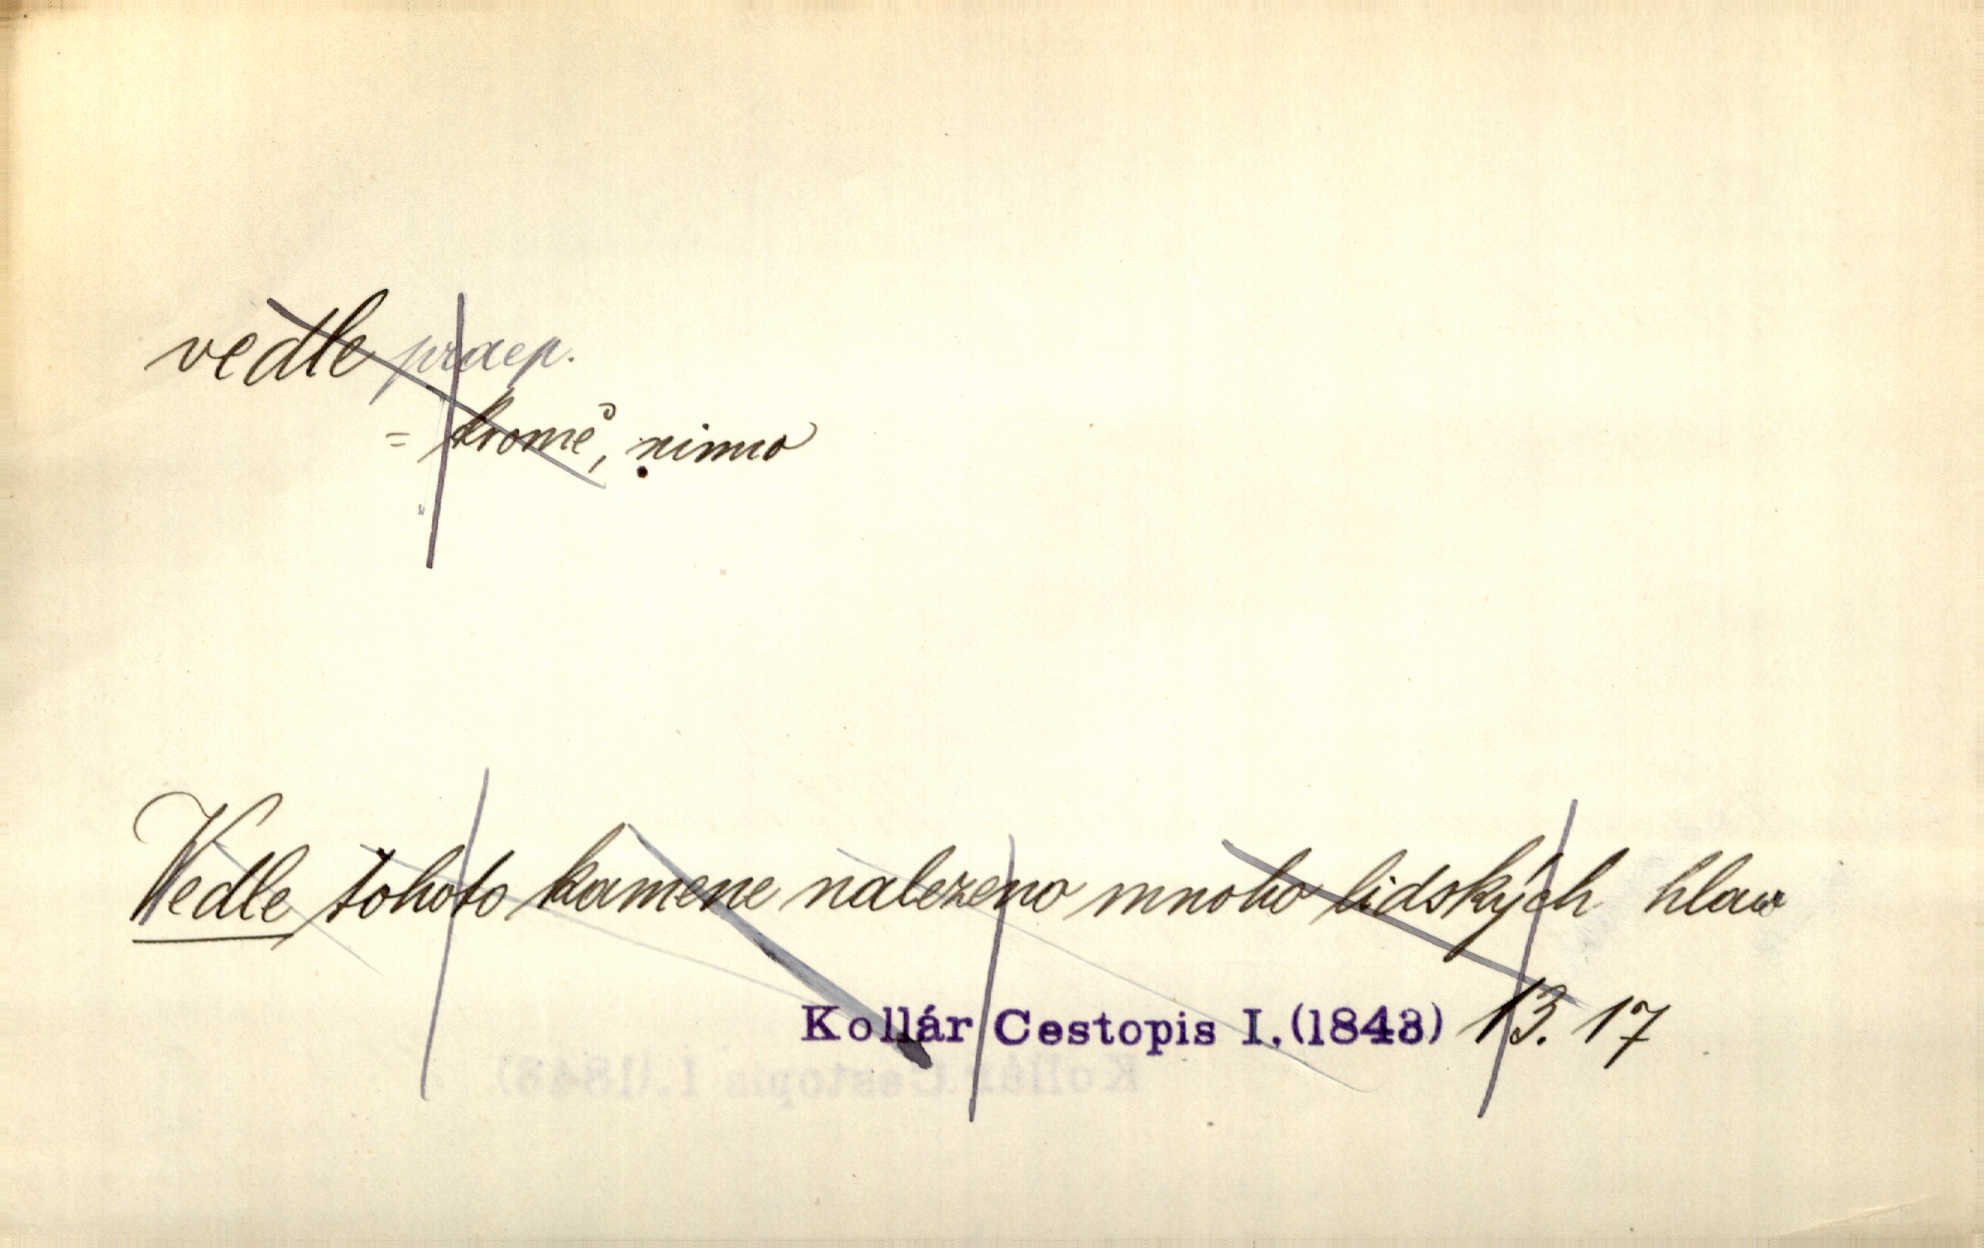 vedle praep.
= kromě, mimo
Vedle tohoto kamene nalezeno mnoho lidských hlaw
Kollár Cestopis I.(1843) 13. 17